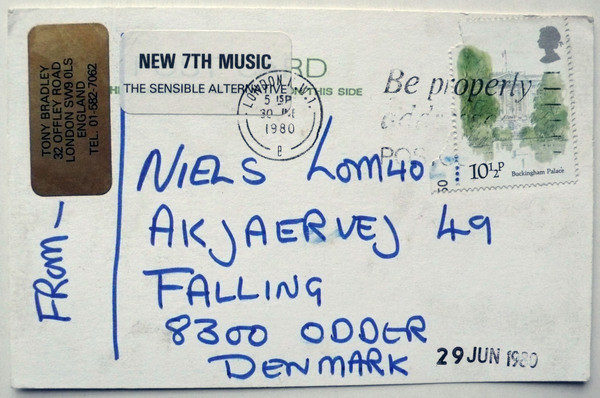 TONY BRADLEY
32 OFFLEY ROAD
LONDON SW9 0LS
ENGLAND
TEL. 01-582-7062
FROM -
NEW 7TH MUSIC
THE SENSIBLE ALTERNATIVE
RD
N THIS SIDE
5 15P
1980
Be properly
10½P
Buckingham Palace
NIELS LOMHO
AKJAERVEJ 49
FALLING
8300 ODDER
DENMARK
29 JUN 1980